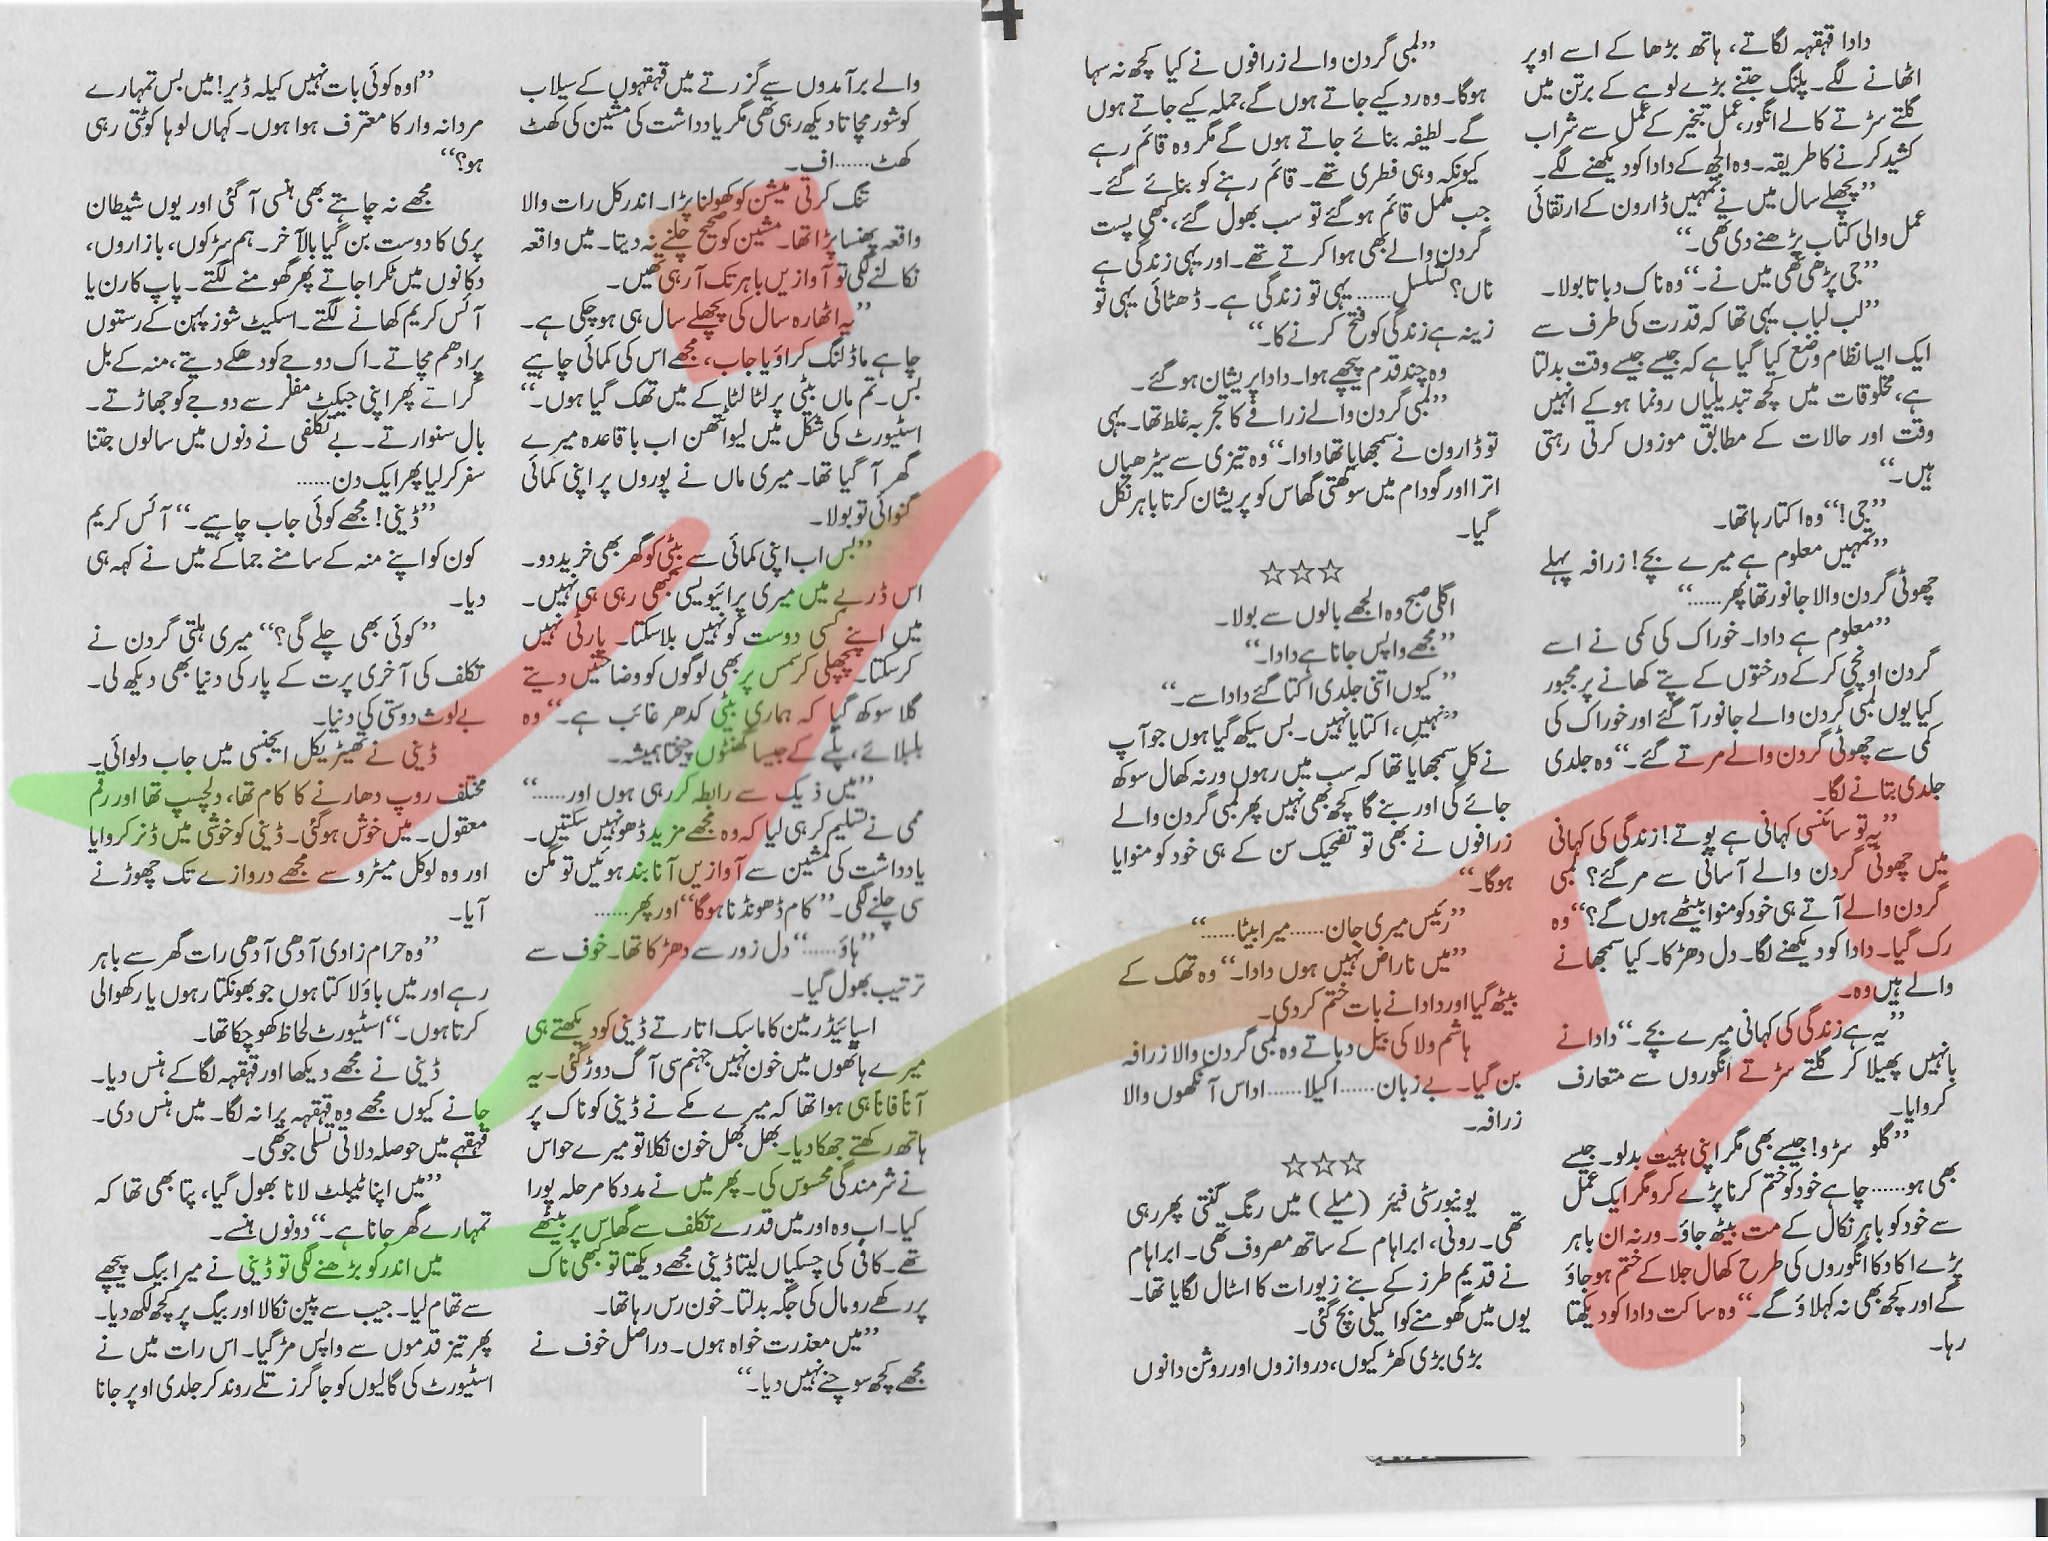 دادا قہقہہ لگاتے، ہاتھ بڑھا کے اسے اوپر
اٹھانے لگے۔ پلنگ جتنے بڑے لوہے کے برتن میں
گلتے سڑتے کالے انگور، عمل تبخیر کے عمل سے شراب
کشید کرنے کا طریقہ۔ وہ الجھ کے دادا کو دیکھنے لگے۔
”پچھلے سال میں نے تمہیں ڈارون کے ارتقائی
عمل والی کتاب پڑھنے دی تھی۔“
”جی پڑھی تھی میں نے۔“ وہ ناک دباتا بولا۔
”لب لباب یہی تھا کہ قدرت کی طرف سے
ایک ایسا نظام وضع کیا گیا ہے کہ جیسے جیسے وقت بدلتا
ہے، مخلوقات میں کچھ تبدیلیاں رونما ہو کے انہیں
وقت اور حالات کے مطابق موزوں کرتی رہتی
ہیں۔“
”جی!“ وہ اکتا رہا تھا۔
”تمہیں معلوم ہے میرے بچے! زرافہ پہلے
چھوٹی گردن والا جانور تھا پھر......“
”معلوم ہے دادا۔ خوراک کی کمی نے اسے
گردن اونچی کر کے درختوں کے پتے کھانے پر مجبور
کیا یوں لمبی گردن والے جانور آ گئے اور خوراک کی
کمی سے چھوٹی گردن والے مرتے گئے۔“ وہ جلدی
جلدی بتانے لگا۔
”یہ تو سائنسی کہانی ہے پوتے! زندگی کی کہانی
میں چھوٹی گردن والے آسانی سے مر گئے؟ لمبی
گردن والے آتے ہی خود کو منوا بیٹھے ہوں گے؟“ وہ
رک گیا۔ دادا کو دیکھنے لگا۔ دل دھڑکا۔ کیا سمجھانے
والے ہیں وہ۔
”یہ ہے زندگی کی کہانی میرے بچے۔“ دادا نے
بانہیں پھیلا کر گلتے سڑتے انگوروں سے متعارف
کروایا۔
”گلو سڑو! جیسے بھی مگر اپنی ہیئت بدلو۔ جیسے
بھی ہو...... چاہے خود کو ختم کرنا پڑے کرو مگر ایک عمل
سے خود کو باہر نکال کے مت بیٹھ جاؤ۔ ورنہ ان باہر
پڑے اکا دکا انگوروں کی طرح کھال جلا کے ختم ہو جاؤ
گے اور کچھ بھی نہ کہلاؤ گے۔“ وہ ساکت دادا کو دیکھتا
رہا۔
”لمبی گردن والے زرافوں نے کیا کچھ نہ سہا
ہوگا۔ وہ رد کیے جاتے ہوں گے، حملہ کیے جاتے ہوں
گے۔ لطیفہ بنائے جاتے ہوں گے مگر وہ قائم رہے
کیونکہ وہی فطری تھے۔ قائم رہنے کو بنائے گئے۔
جب مکمل قائم ہو گئے تو سب بھول گئے، کبھی پست
گردن والے بھی ہوا کرتے تھے۔ اور یہی زندگی ہے
ناں؟ تسلسل...... یہی تو زندگی ہے۔ ڈھٹائی یہی تو
زینہ ہے زندگی کو فتح کرنے کا۔“
وہ چند قدم پیچھے ہوا۔ دادا پریشان ہو گئے۔
”لمبی گردن والے زرافے کا تجربہ غلط تھا۔ یہی
تو ڈارون نے سمجھایا تھا دادا۔“ وہ تیزی سے سیڑھیاں
اترا اور گودام میں سوکھتی گھاس کو پریشان کرتا باہر نکل
گیا۔
☆☆☆
اگلی صبح وہ الجھے بالوں سے بولا۔
”مجھے واپس جانا ہے دادا۔“
”کیوں اتنی جلدی اکتا گئے دادا سے۔“
”نہیں، اکتایا نہیں۔ بس سیکھ گیا ہوں جو آپ
نے کل سمجھایا تھا کہ سب میں رہوں ورنہ کھال سوکھ
جائے گی اور بنے گا کچھ بھی نہیں پھر لمبی گردن والے
زرافوں نے بھی تو تضحیک سن کے ہی خود کو منوایا
ہوگا۔“
”رئیس میری جان...... میرا بیٹا......“
”میں ناراض نہیں ہوں دادا۔“ وہ تھک کے
بیٹھ گیا اور دادا نے بات ختم کر دی۔
ہاشم ولا کی بیل دباتے وہ لمبی گردن والا زرافہ
بن گیا۔ بے زبان...... اکیلا...... اداس آنکھوں والا
زرافہ۔
☆☆☆
یونیورسٹی فیئر (میلے) میں رنگ گنتی پھر رہی
تھی۔ رونی، ابراہام کے ساتھ مصروف تھی۔ ابراہام
نے قدیم طرز کے بنے زیورات کا اسٹال لگایا تھا۔
یوں میں گھومنے کو اکیلی بچ گئی۔
بڑی بڑی کھڑکیوں، دروازوں اور روشن دانوں
والے برآمدوں سے گزرتے میں قہقہوں کے سیلاب
کو شور مچاتا دیکھ رہی تھی مگر یادداشت کی مشین کی کھٹ
کھٹ...... اف۔
تنگ کرتی مشین کو کھولنا پڑا۔ اندر کل رات والا
واقعہ پھنسا پڑا تھا۔ مشین کو صحیح چلنے نہ دیتا۔ میں واقعہ
نکالنے لگی تو آوازیں باہر تک آ رہی تھیں۔
”یہ اٹھارہ سال کی پچھلے سال ہی ہو چکی ہے۔
چاہے ماڈلنگ کراؤ یا جاب، مجھے اس کی کمائی چاہیے
بس۔ تم ماں بیٹی پر لٹا لٹا کے میں تھک گیا ہوں۔“
اسٹیورٹ کی شکل میں لیواتھن اب باقاعدہ میرے
گھر آ گیا تھا۔ میری ماں نے پوروں پر اپنی کمائی
گنوائی تو بولا۔
”بس اب اپنی کمائی سے بیٹی کو گھر بھی خرید دو۔
اس ڈربے میں میری پرائیویسی کبھی رہی ہی نہیں۔
میں اپنے کسی دوست کو نہیں بلا سکتا۔ پارٹی نہیں
کر سکتا۔ پچھلی کرسمس پر بھی لوگوں کو وضاحتیں دیتے
گلا سوکھ گیا کہ ہماری بیٹی کدھر غائب ہے۔“ وہ
بلبلائے، پلے کے جیسا گھنٹوں چیختا ہمیشہ۔
”میں ڈیک سے رابطہ کر رہی ہوں اور......“
ممی نے تسلیم کر ہی لیا کہ وہ مجھے مزید ڈھو نہیں سکتیں۔
یادداشت کی مشین سے آوازیں آنا بند ہوئیں تو مگن
سی چلنے لگی۔ ”کام ڈھونڈنا ہوگا“ اور پھر......
”ہاؤ......“ دل زور سے دھڑکا تھا۔ خوف سے
ترتیب بھول گیا۔
اسپائیڈر مین کا ماسک اتارتے ڈینی کو دیکھتے ہی
میرے ہاتھوں میں خون نہیں جہنم سی آگ دوڑ گئی۔ یہ
آناً فاناً ہی ہوا تھا کہ میرے مکے نے ڈینی کو ناک پر
ہاتھ رکھتے جھکا دیا۔ بھل بھل خون نکلا تو میرے حواس
نے شرمندگی محسوس کی۔ پھر میں نے مدد کا مرحلہ پورا
کیا۔ اب وہ اور میں قدرے تکلف سے گھاس پر بیٹھے
تھے۔ کافی کی چسکیاں لیتا ڈینی مجھے دیکھتا تو کبھی ناک
پر رکھے رومال کی جگہ بدلتا۔ خون رس رہا تھا۔
”میں معذرت خواہ ہوں۔ دراصل خوف نے
مجھے کچھ سوچنے نہیں دیا۔“
”اوہ کوئی بات نہیں کیلہ ڈیر! میں بس تمہارے
مردانہ وار کا معترف ہوا ہوں۔ کہاں لوہا کوٹتی رہی
ہو؟“
مجھے نہ چاہتے بھی ہنسی آ گئی اور یوں شیطان
پری کا دوست بن گیا بالآخر۔ ہم سڑکوں، بازاروں،
دکانوں میں ٹکرا جاتے پھر گھومنے لگتے۔ پاپ کارن یا
آئس کریم کھانے لگتے۔ اسکیٹ شوز پہن کے رستوں
پر ادھم مچاتے۔ اک دوجے کو دھکے دیتے، منہ کے بل
گراتے پھر اپنی جیکٹ مفلر سے دوجے کو جھاڑتے۔
بال سنوارتے۔ بے تکلفی نے دنوں میں سالوں جتنا
سفر کر لیا پھر ایک دن......
”ڈینی! مجھے کوئی جاب چاہیے۔“ آئس کریم
کون کو اپنے منہ کے سامنے جما کے میں نے کہہ ہی
دیا۔
”کوئی بھی چلے گی؟“ میری ہلتی گردن نے
تکلف کی آخری پرت کے پار کی دنیا بھی دیکھ لی۔
بے لوث دوستی کی دنیا۔
ڈینی نے تھیٹریکل ایجنسی میں جاب دلوائی۔
مختلف روپ دھارنے کا کام تھا، دلچسپ تھا اور رقم
معقول۔ میں خوش ہو گئی۔ ڈینی کو خوشی میں ڈنر کروایا
اور وہ لوکل میٹرو سے مجھے دروازے تک چھوڑنے
آیا۔
”وہ حرام زادی آدھی آدھی رات گھر سے باہر
رہے اور میں باؤلا کتا ہوں جو بھونکتا رہوں یا رکھوالی
کرتا ہوں۔“ اسٹیورٹ لحاظ کھو چکا تھا۔
ڈینی نے مجھے دیکھا اور قہقہہ لگا کے ہنس دیا۔
جانے کیوں مجھے وہ قہقہہ برا نہ لگا۔ میں ہنس دی۔
قہقہے میں حوصلہ دلاتی تسلی جو تھی۔
”میں اپنا ٹیبلٹ لانا بھول گیا، پتا بھی تھا کہ
تمہارے گھر جانا ہے۔“ دونوں ہنسے۔
میں اندر کو بڑھنے لگی تو ڈینی نے میرا بیگ پیچھے
سے تھام لیا۔ جیب سے پین نکالا اور بیگ پر کچھ لکھ دیا۔
پھر تیز قدموں سے واپس مڑ گیا۔ اس رات میں نے
اسٹیورٹ کی گالیوں کو جاگرز تلے روند کر جلدی اوپر جانا